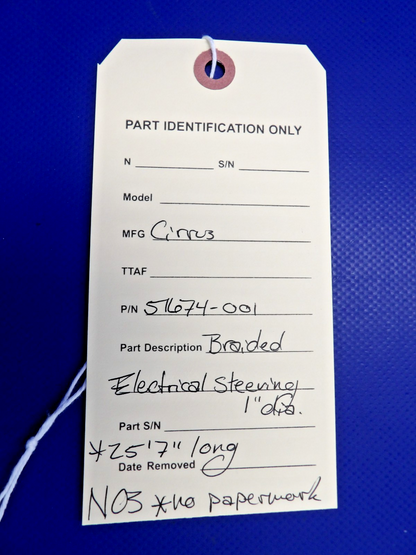 PART IDENTIFICATION ONLY
N ____________ S/N ____________
Model ____________
MFG Cirrus
TTAF ____________
P/N 51674-001
Part Description Braided
Electrical Sleeving
1" dia.
Part S/N ____________
*25'7" long
Date Removed ____________
NOS *no paperwork